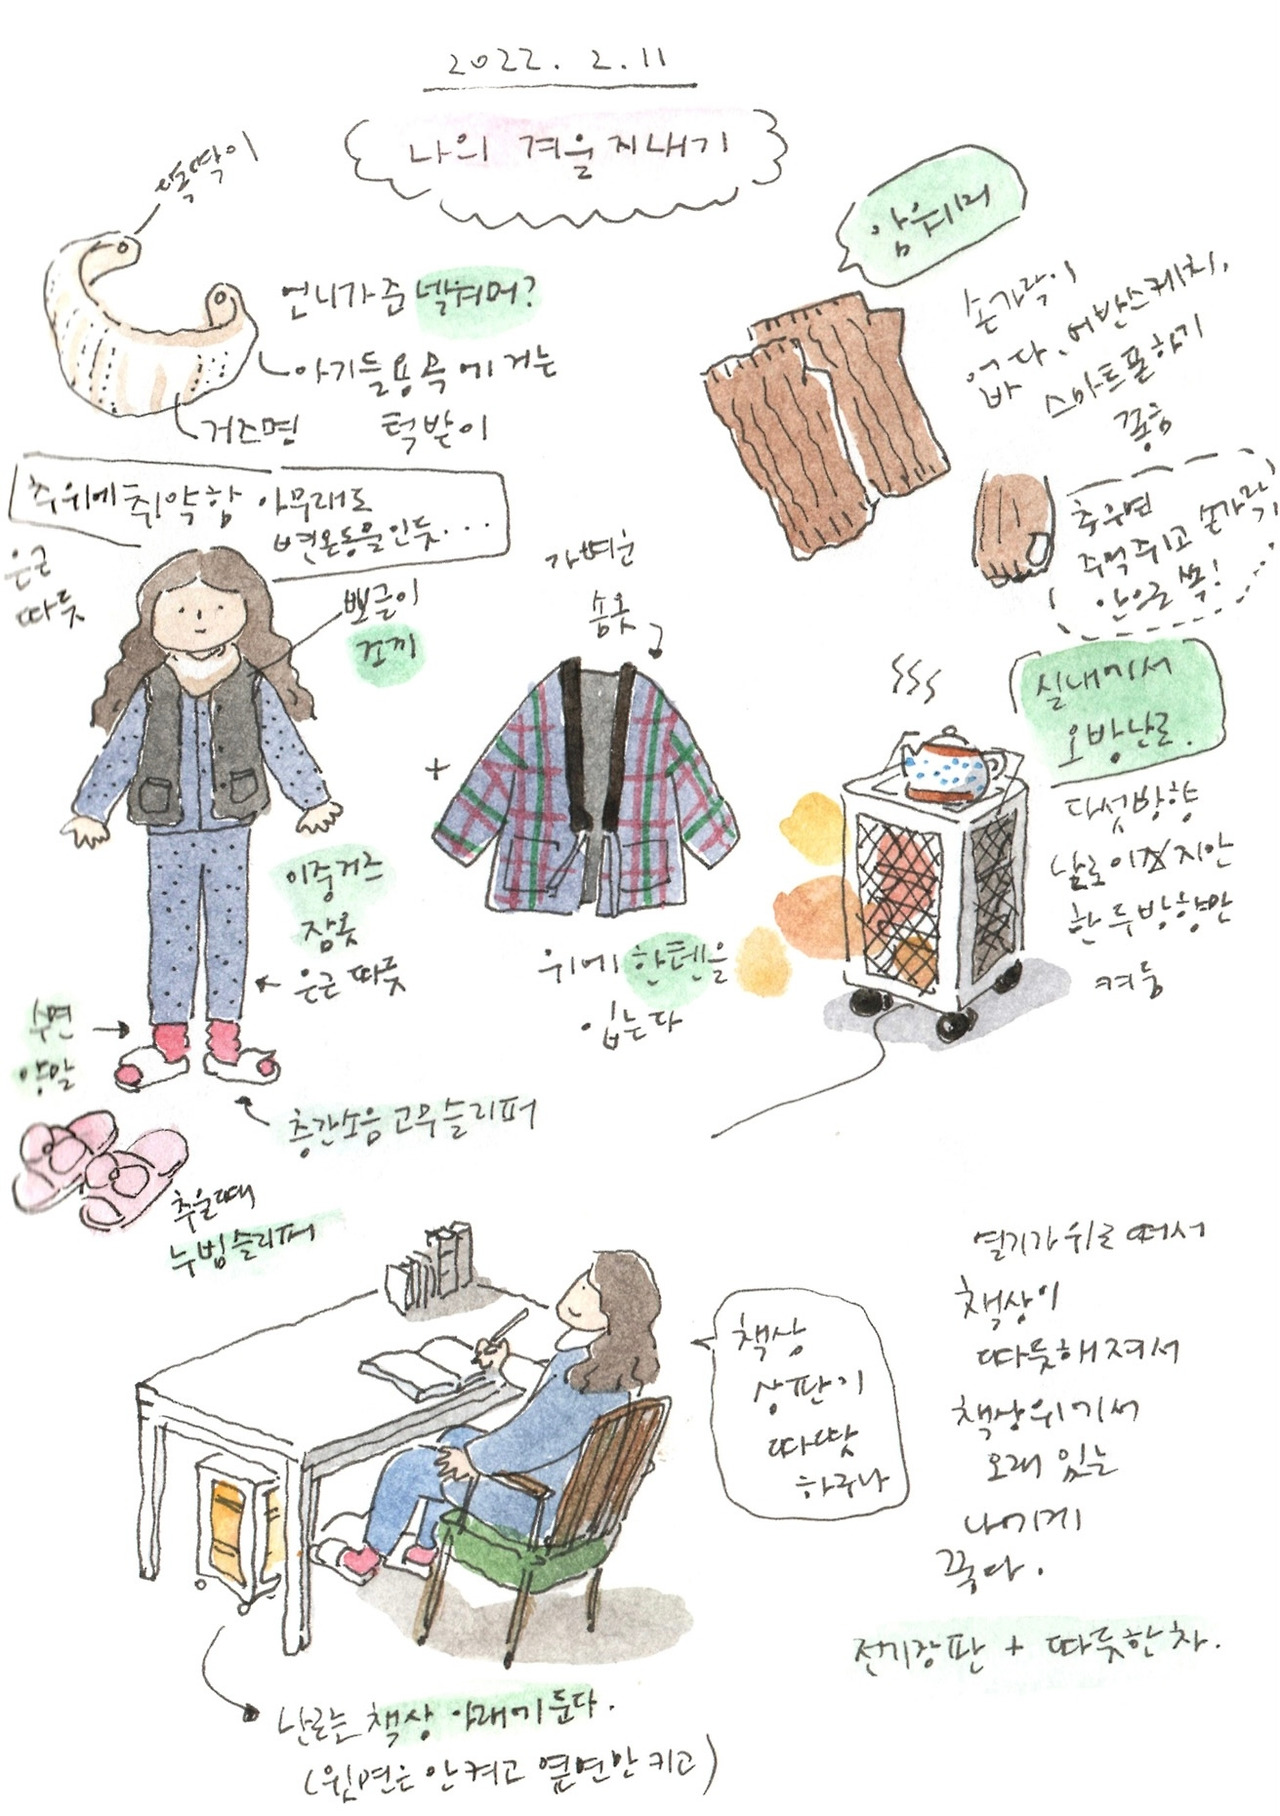 2022. 2. 11
나의 겨울지내기
똑딱이
언니가준 넥워머?
아기들용 목에 거는
턱받이
거즈면
추위에 취약함 아무래도
변온동물인듯...
은근
따듯
뽀글이
조끼
가벼운
솜옷
+
이중거즈
잠옷
은근 따듯
위에 한텐을
입는다
수면
양말
층간소음 고무슬리퍼
추울때
누빔슬리퍼
암워머
손가락이
스마트폰하기
좋음
추우면
주먹쥐고 손가락
안으로 쏙!
실내에서
오방난로.
다섯방향
난로이지만
한두방향만
켜둠
책상
상판이
따땃
하구나
열기가 위로 떠서
책상이
따듯해져서
책상위에서
오래 있는
나에게
딱다.
전기장판 + 따듯한 차.
난로는 책상 아래에 둔다.
(윗면은 안켜고 옆면만 키고)